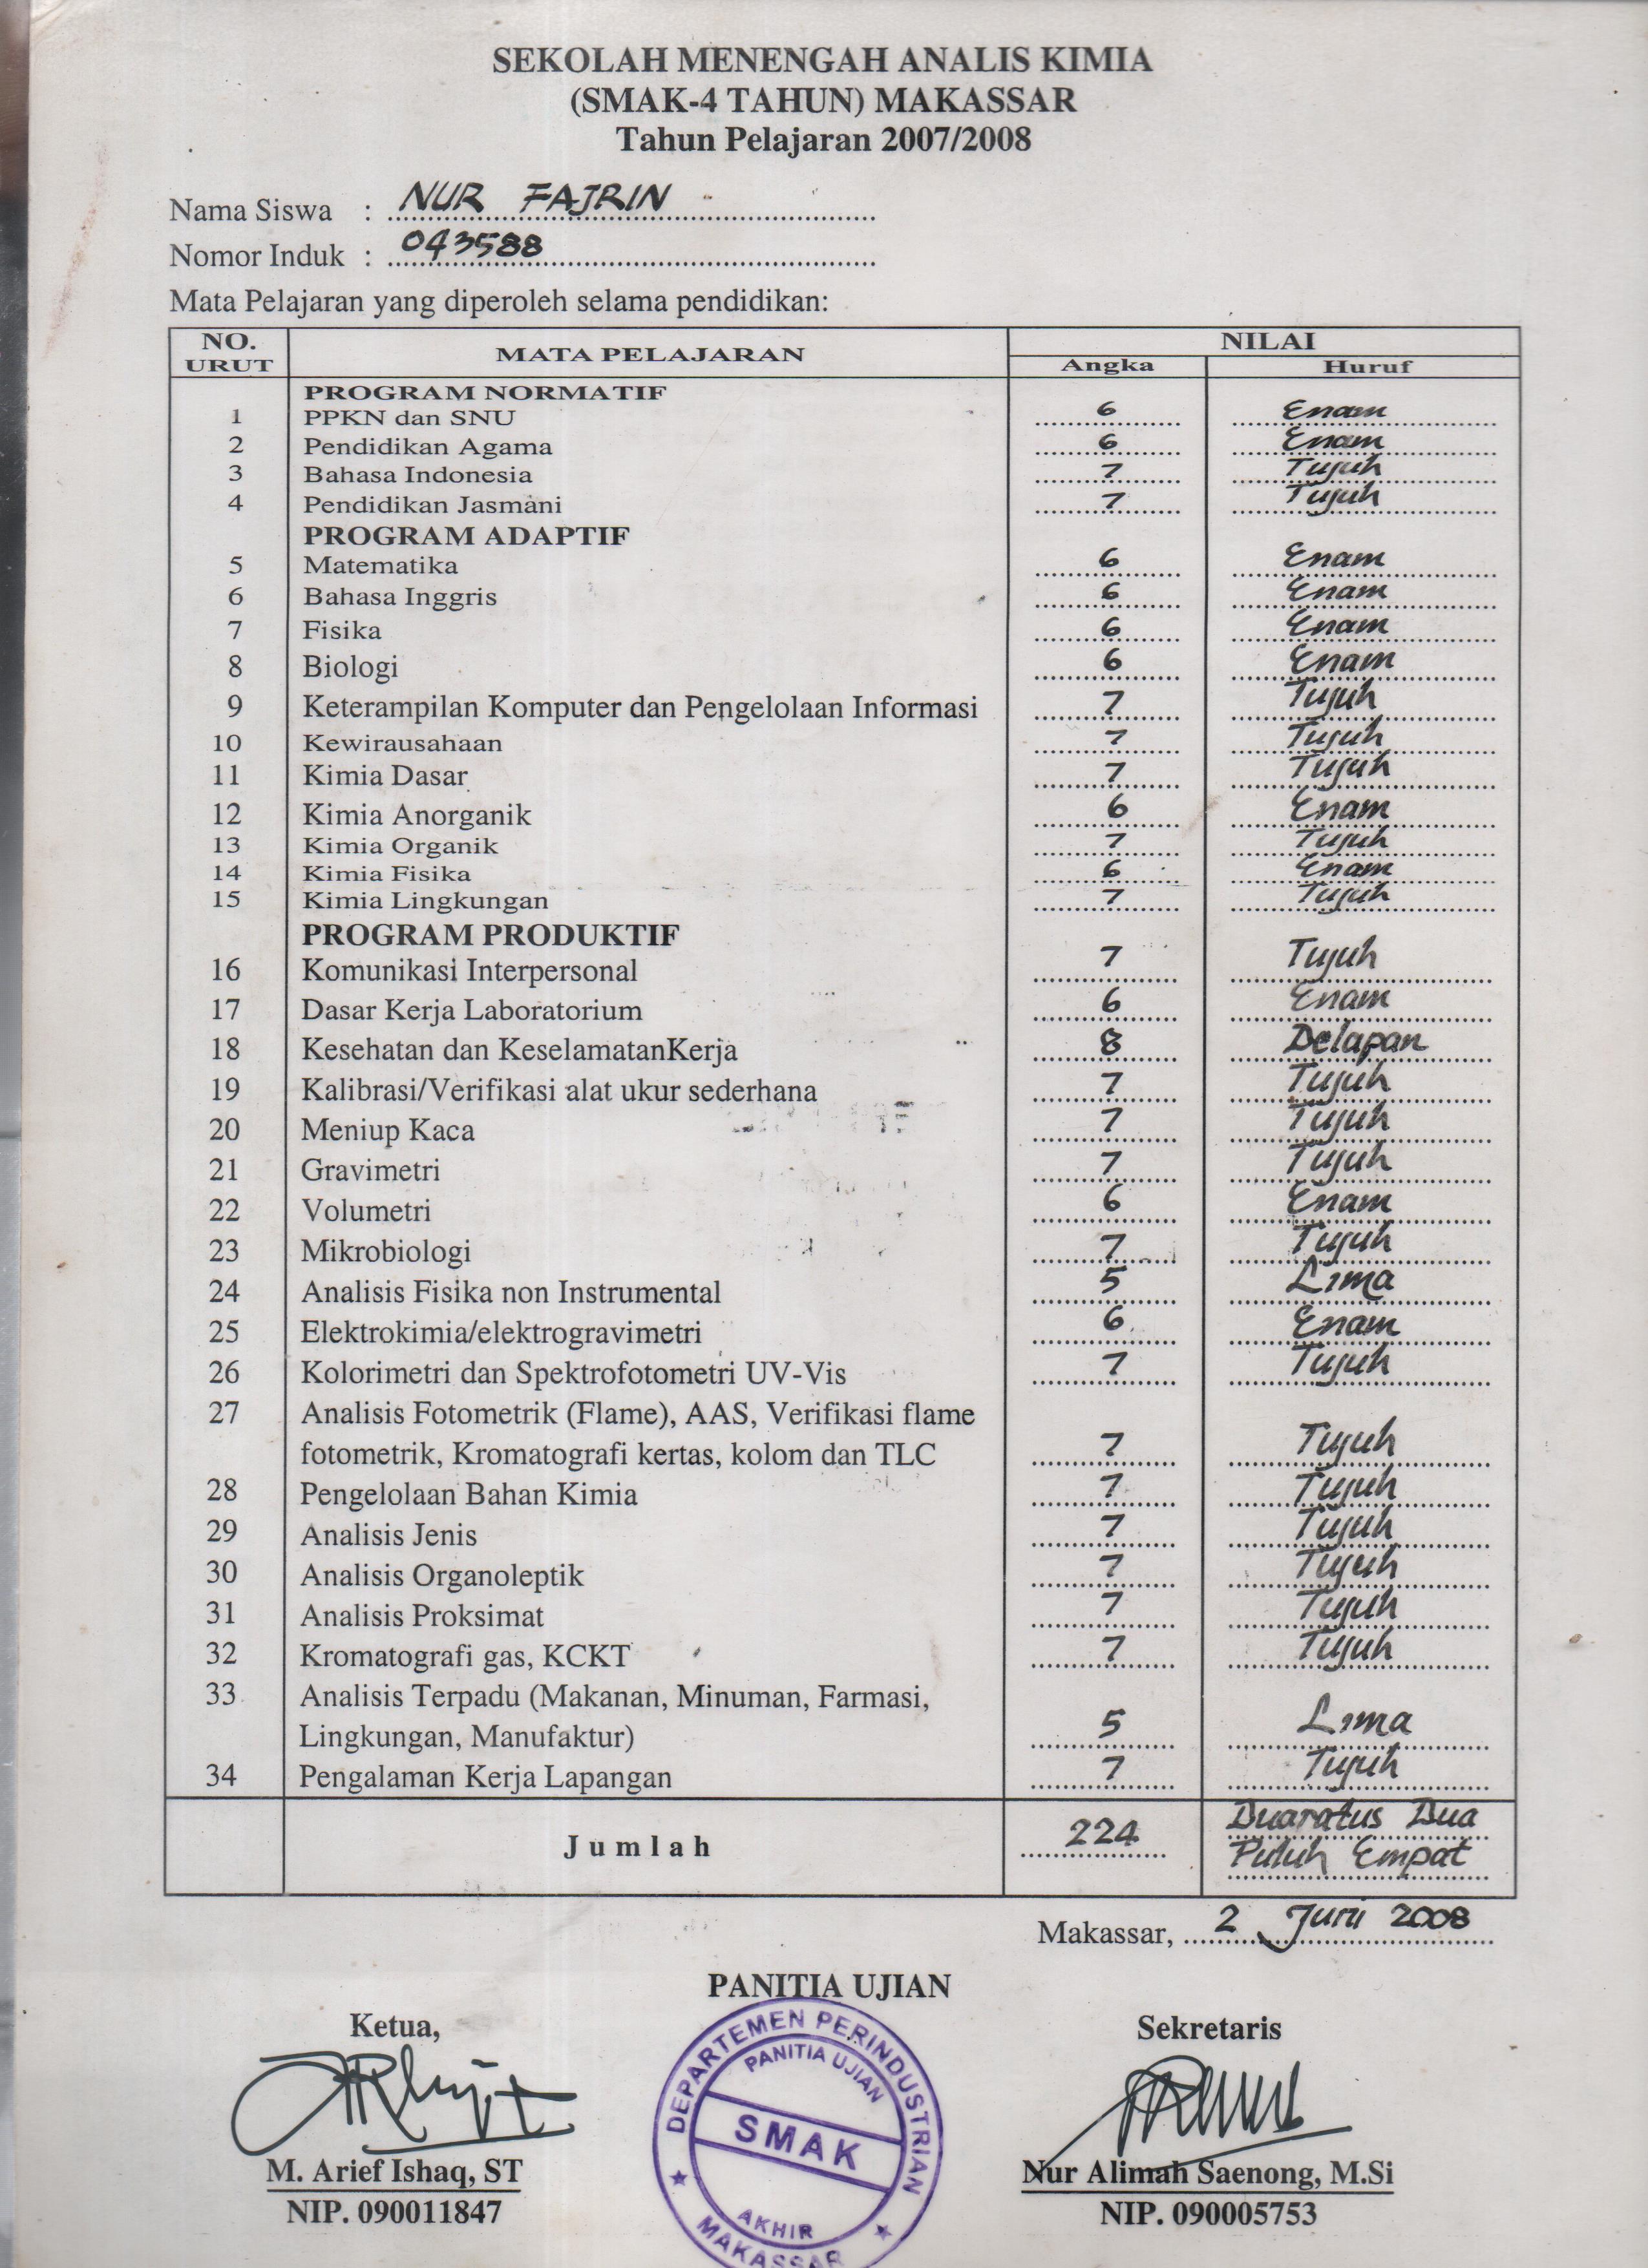 SEKOLAH MENENGAH ANALIS KIMIA
(SMAK-4 TAHUN) MAKASSAR
Tahun Pelajaran 2007/2008
Nama Siswa : NUR FAJRIN
Nomor Induk : 043588
Mata Pelajaran yang diperoleh selama pendidikan:
NO. URUT MATA PELAJARAN NILAI
Angka Huruf
PROGRAM NORMATIF
1 PPKN dan SNU 6 Enam
2 Pendidikan Agama 6 Enam
3 Bahasa Indonesia 7 Tujuh
4 Pendidikan Jasmani 7 Tujuh
PROGRAM ADAPTIF
5 Matematika 6 Enam
6 Bahasa Inggris 6 Enam
7 Fisika 6 Enam
8 Biologi 6 Enam
9 Keterampilan Komputer dan Pengelolaan Informasi 7 Tujuh
10 Kewirausahaan 7 Tujuh
11 Kimia Dasar 7 Tujuh
12 Kimia Anorganik 6 Enam
13 Kimia Organik 7 Tujuh
14 Kimia Fisika 6 Enam
15 Kimia Lingkungan 7 Tujuh
PROGRAM PRODUKTIF
16 Komunikasi Interpersonal 7 Tujuh
17 Dasar Kerja Laboratorium 6 Enam
18 Kesehatan dan KeselamatanKerja 8 Delapan
19 Kalibrasi/Verifikasi alat ukur sederhana 7 Tujuh
20 Meniup Kaca 7 Tujuh
21 Gravimetri 7 Tujuh
22 Volumetri 6 Enam
23 Mikrobiologi 7 Tujuh
24 Analisis Fisika non Instrumental 5 Lima
25 Elektrokimia/elektrogravimetri 6 Enam
26 Kolorimetri dan Spektrofotometri UV-Vis 7 Tujuh
27 Analisis Fotometrik (Flame), AAS, Verifikasi flame
fotometrik, Kromatografi kertas, kolom dan TLC 7 Tujuh
28 Pengelolaan Bahan Kimia 7 Tujuh
29 Analisis Jenis 7 Tujuh
30 Analisis Organoleptik 7 Tujuh
31 Analisis Proksimat 7 Tujuh
32 Kromatografi gas, KCKT 7 Tujuh
33 Analisis Terpadu (Makanan, Minuman, Farmasi,
Lingkungan, Manufaktur) 5 Lima
34 Pengalaman Kerja Lapangan 7 Tujuh
Jumlah 224 Duaratus Dua
Puluh Empat
Makassar, 2 Juni 2008
PANITIA UJIAN
Ketua, Sekretaris
DEPARTEMEN PERINDUSTRIAN
PANITIA UJIAN
SMAK
AKHIR
MAKASSAR
M. Arief Ishaq, ST Nur Alimah Saenong, M.Si
NIP. 090011847 NIP. 090005753